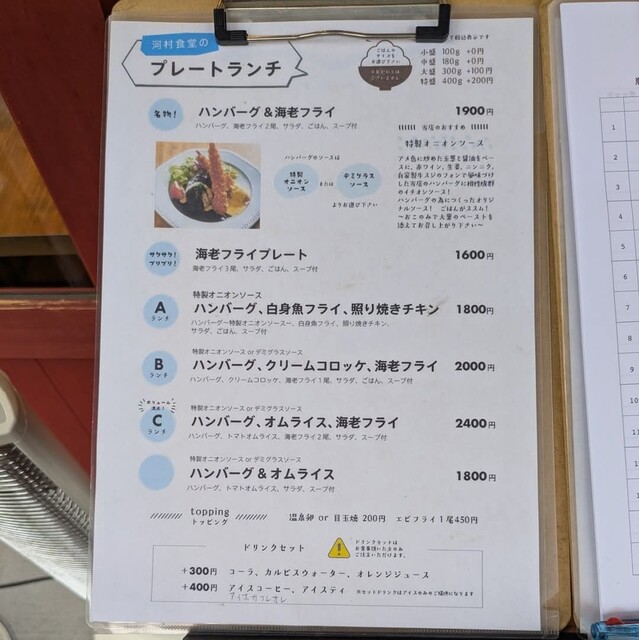 河村食堂の
プレートランチ
ごはんの
サイズを
お選び下さい
下税込表示です
小盛 100g +0円
中盛 180g +0円
大盛 300g +100円
特盛 400g +200円
名物!
ハンバーグ&海老フライ
1900円
ハンバーグ、海老フライ2尾、サラダ、ごはん、スープ付
ハンバーグのソースは
特製
オニオン
ソース
または
デミグラス
ソース
よりお選び下さい
当店のおすすめ
特製オニオンソース
アメ色に炒めた玉葱と醤油をベー
スに、赤ワイン、生姜、ニンニク、
自家製牛スジのフォンで風味づけ
した当店のハンバーグに相性抜群
のイチオシソース!
ハンバーグの為につくったオリジ
ナルソース! ごはんがススム!
〜おこのみで大葉のペーストを
添えてお召し上がり下さい〜
サクサク!
プリプリ!
海老フライプレート
1600円
海老フライ3尾、サラダ、ごはん、スープ付
A
ランチ
特製オニオンソース
ハンバーグ、白身魚フライ、照り焼きチキン
1800円
ハンバーグー特製オニオンソースー、白身魚フライ、照り焼きチキン、
サラダ、ごはん、スープ付
B
ランチ
特製オニオンソース or デミグラスソース
ハンバーグ、クリームコロッケ、海老フライ
2000円
ハンバーグ、クリームコロッケ、海老フライ1尾、サラダ、ごはん、スープ付
ボリューム
満点!
C
ランチ
特製オニオンソース or デミグラスソース
ハンバーグ、オムライス、海老フライ
2400円
ハンバーグ、トマトオムライス、海老フライ2尾、サラダ、スープ付
特製オニオンソース or デミグラスソース
ハンバーグ&オムライス
1800円
ハンバーグ、トマトオムライス、サラダ、スープ付
topping
トッピング
温泉卵 or 目玉焼 200円 エビフライ1尾450円
ドリンクセット
ドリンクセットは
お食事頂いた方のみ
ご注文いただけます。
+300円 コーラ、カルピスウォーター、オレンジジュース
+400円 アイスコーヒー、アイスティ
※セットドリンクはアイスのみのご提供になります
アイスカフェオレ
1
2
3
4
5
6
7
8
9